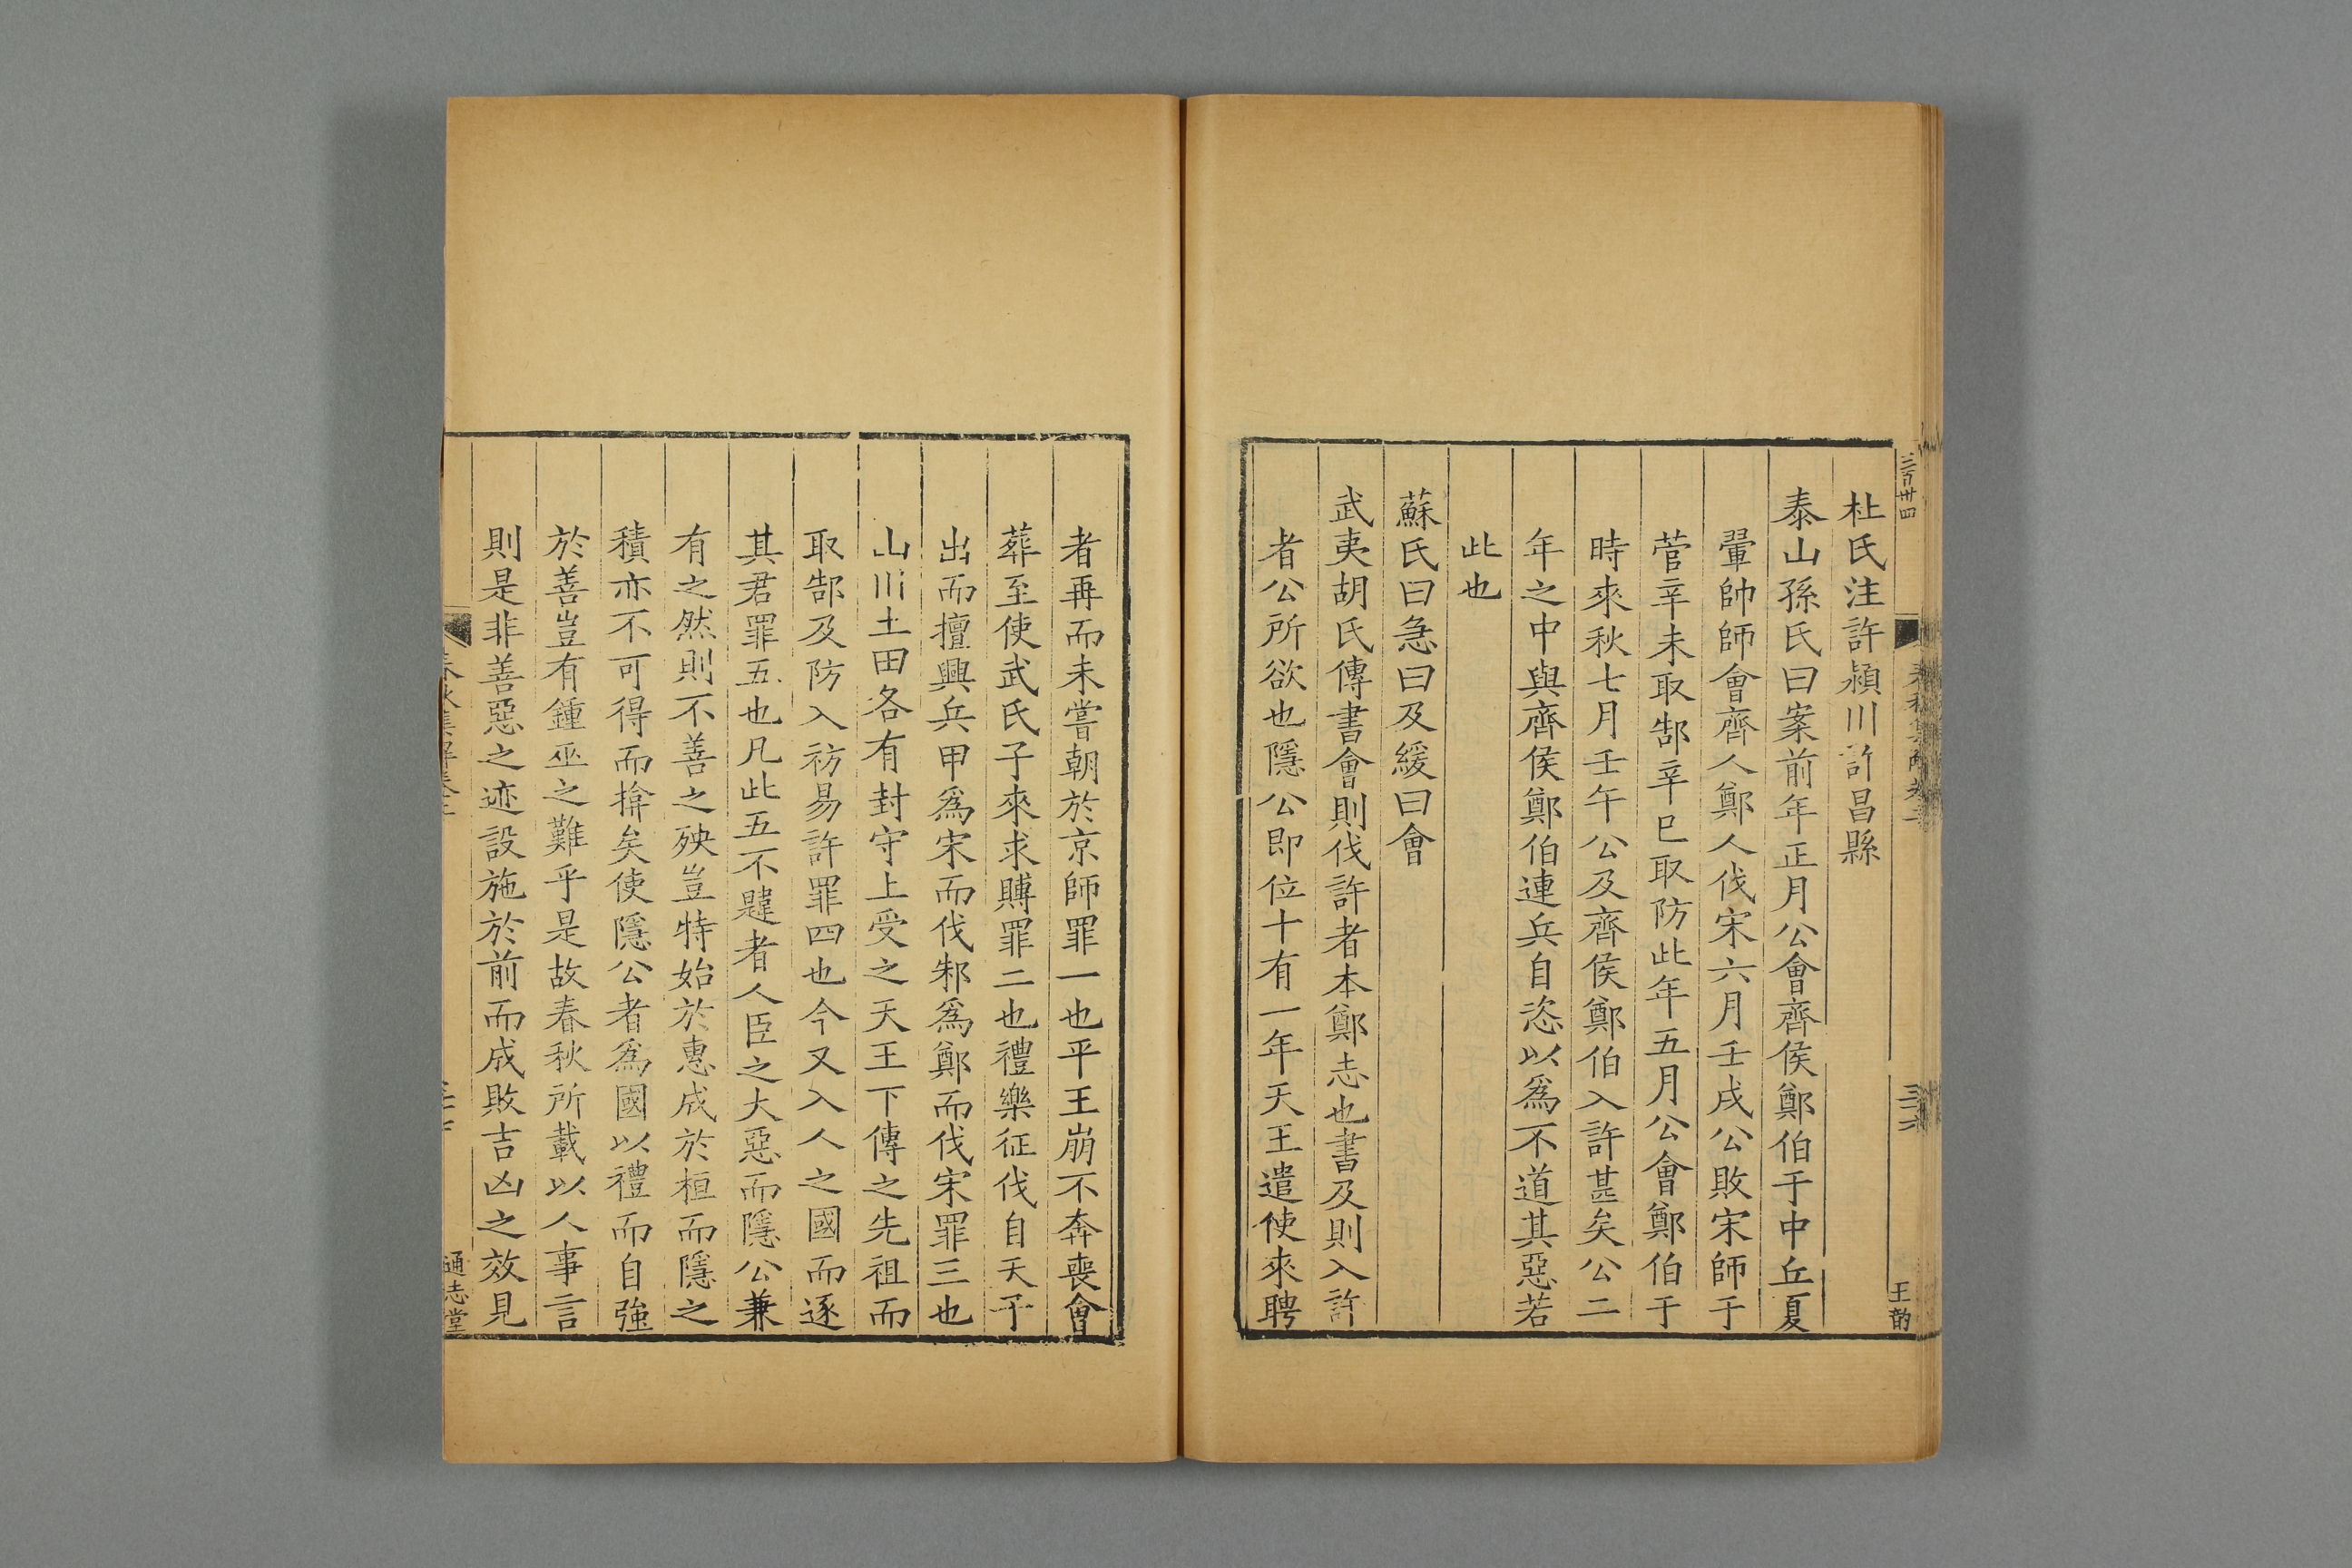 三百廿四
杜氏注許潁川許昌縣
泰山孫氏曰案前年正月公會齊侯鄭伯于中丘夏
翬帥師會齊人鄭人伐宋六月壬戌公敗宋師于
菅辛未取郜辛巳取防此年五月公會鄭伯于
時來秋七月壬午公及齊侯鄭伯入許甚矣公二
年之中與齊侯鄭伯連兵自恣以為不道其惡若
此也
蘇氏曰急曰及緩曰會
武夷胡氏傳書會則伐許者本鄭志也書及則入許
者公所欲也隱公即位十有一年天王遣使來聘
者再而未嘗朝於京師罪一也平王崩不奔喪會
葬至使武氏子來求賻罪二也禮樂征伐自天子
出而擅興兵甲為宋而伐邾為鄭而伐宋罪三也
山川土田各有封守上受之天王下傳之先祖而
取郜及防入祊易許罪四也今又入人之國而逐
其君罪五也凡此五不韙者人臣之大惡而隱公兼
有之然則不善之殃豈特始於惠成於桓而隱之
積亦不可得而揜矣使隱公者為國以禮而自強
於善豈有鍾巫之難乎是故春秋所載以人事言
則是非善惡之迹設施於前而成敗吉凶之效見
春秋集解卷三
通志堂